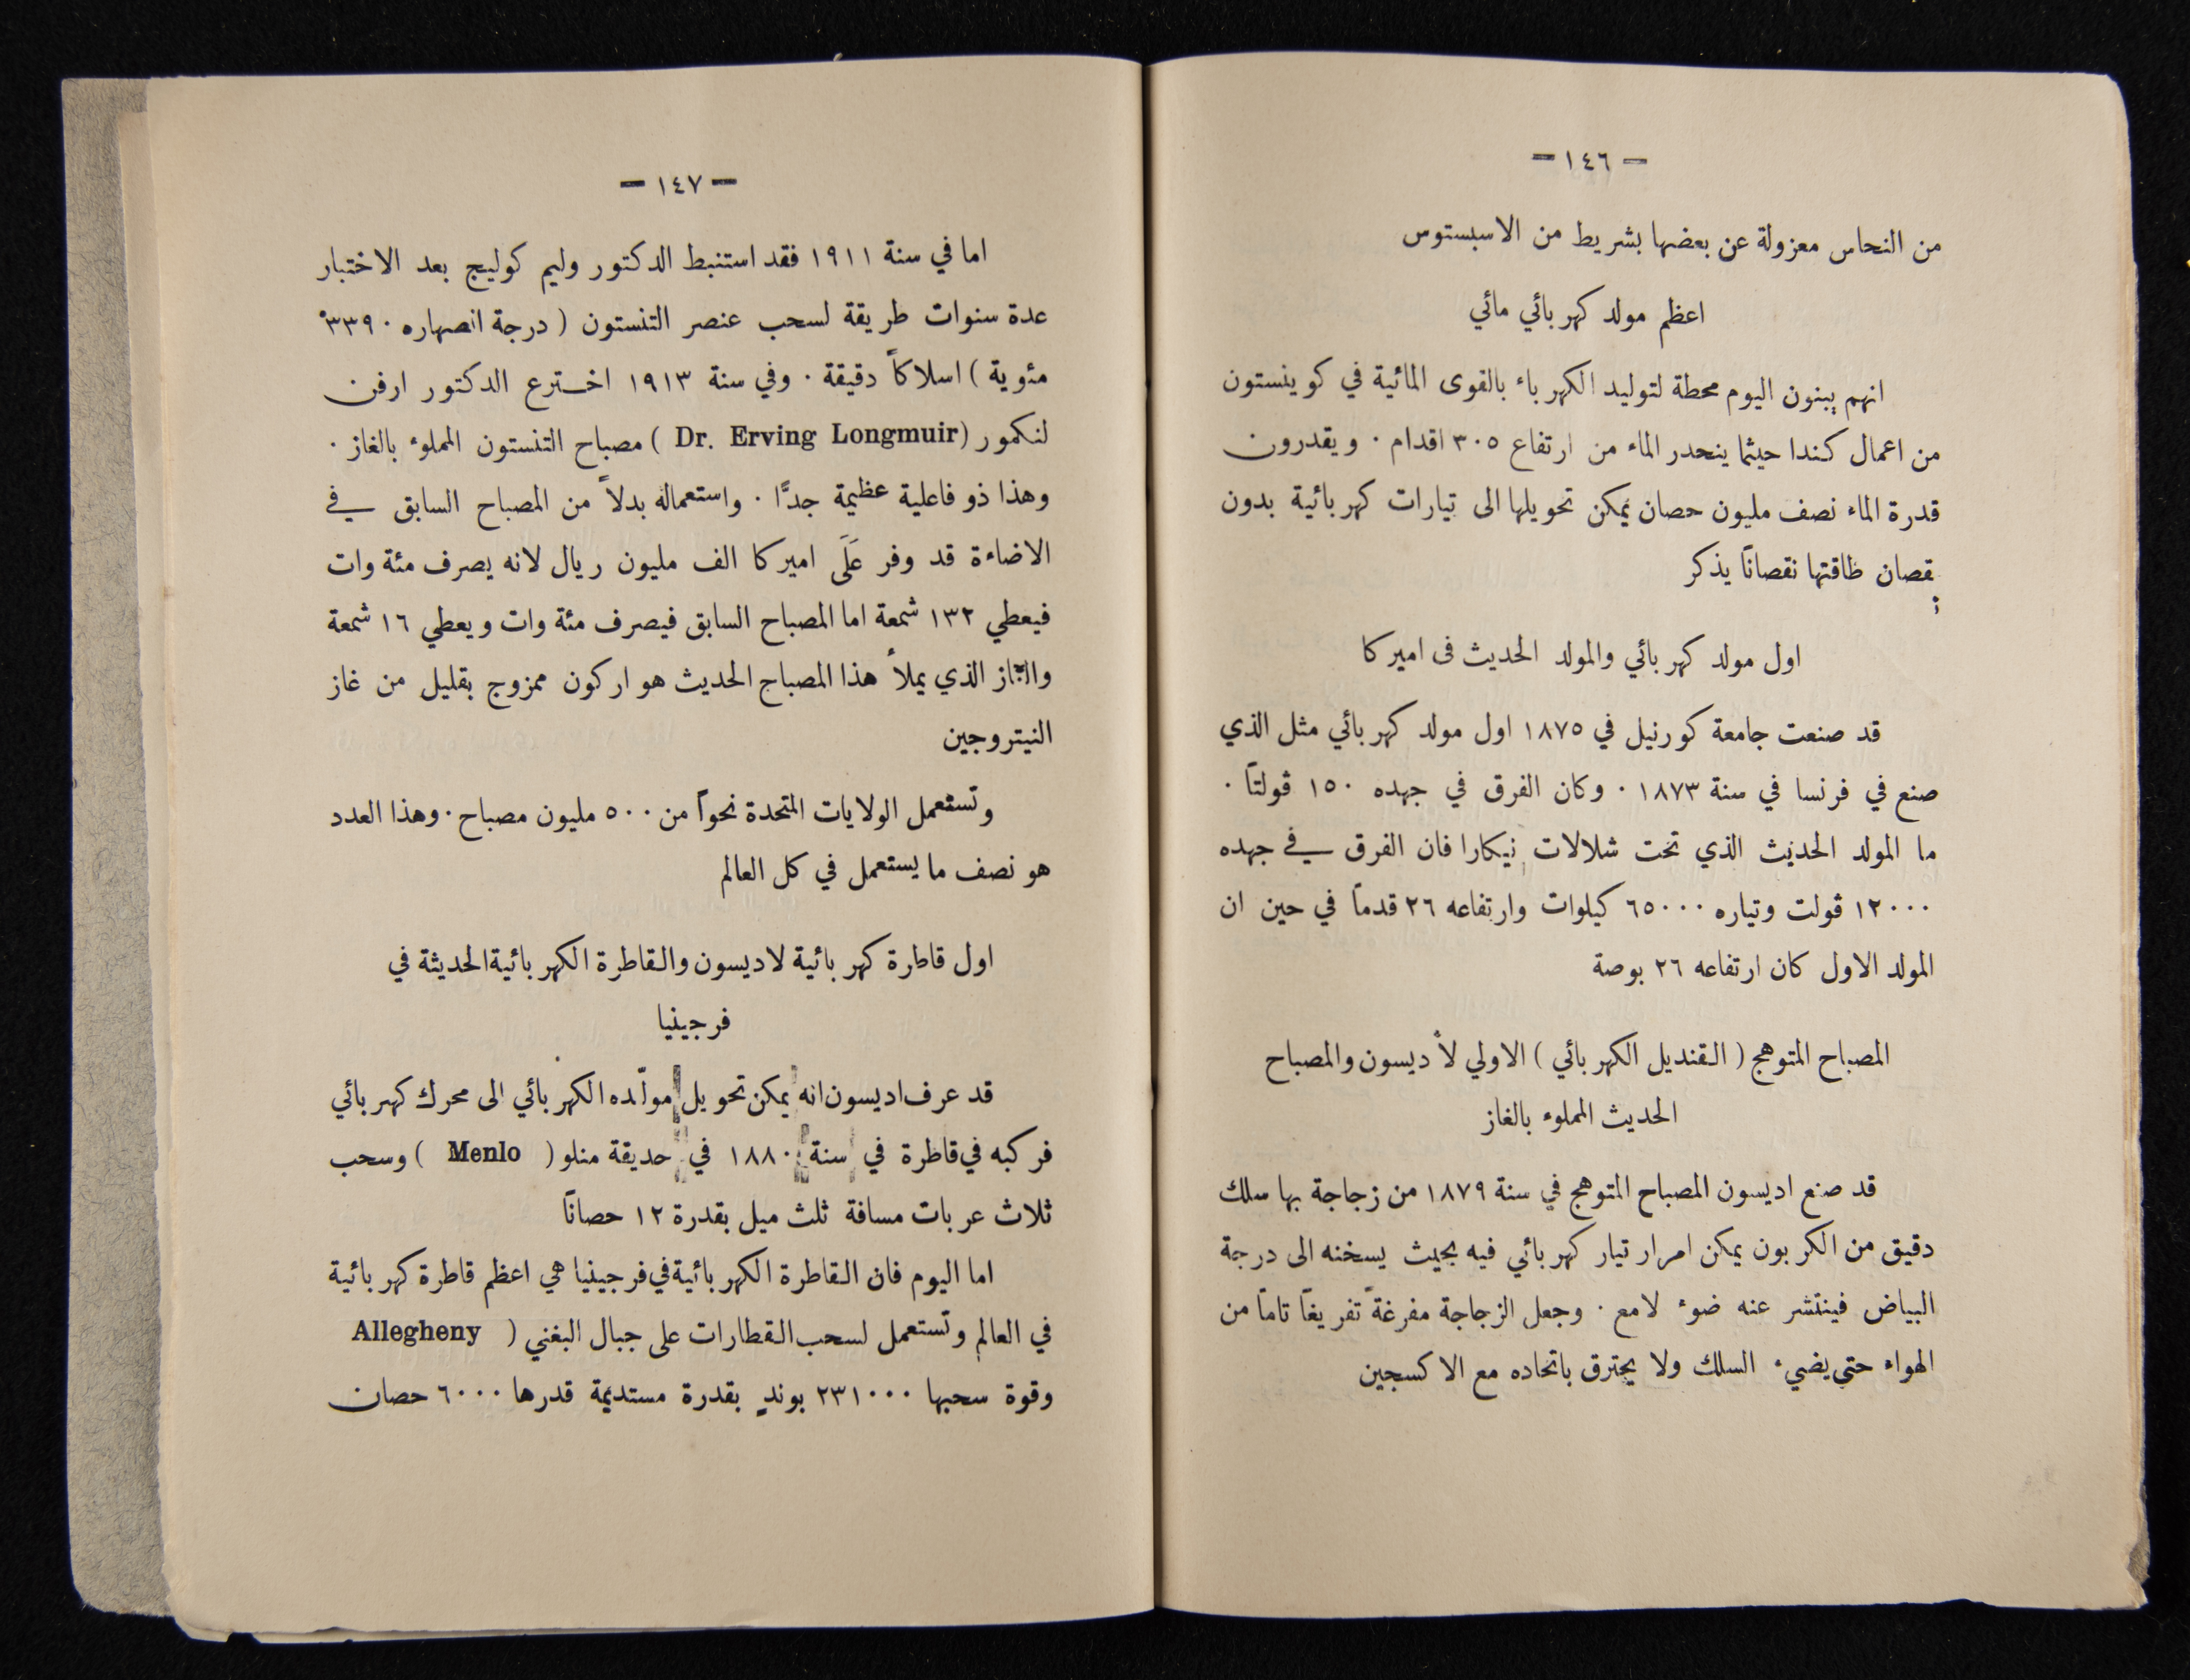 — ١٤٦ —
من النحاس معزولة عن بعضها بشريط من الاسبستوس
اعظم مولد كهربائي مائي
انهم يبنون اليوم محطة لتوليد الكهرباء بالقوى المائية في كوينستون
من اعمال كندا حيثما ينحدر الماء من ارتفاع ٣٠٥ اقدام . ويقدرون
قدرة الماء نصف مليون حصان يمكن تحويلها الى تيارات كهربائية بدون
نقصان طاقتها نقصانًا يذكر
اول مولد كهربائي والمولد الحديث فى اميركا
قد صنعت جامعة كورنيل في ١٨٧٥ اول مولد كهربائي مثل الذي
صنع في فرنسا في سنة ١٨٧٣ . وكان الفرق في جهده ١٥٠ ڤولتًا .
ما المولد الحديث الذي تحت شلالات نيكارا فان الفرق في جهده
١٢٠٠٠ ڤولت وتياره ٦٥٠٠٠ كيلوات وارتفاعه ٢٦ قدمًا في حين ان
المولد الاول كان ارتفاعه ٢٦ بوصة
المصباح المتوهج ( القنديل الكهربائي ) الاولي لأديسون والمصباح
الحديث المملوء بالغاز
قد صنع اديسون المصباح المتوهج في سنة ١٨٧٩ من زجاجة بها سلك
دقيق من الكربون يمكن امرار تيار كهربائي فيه بحيث يسخنه الى درجة
البياض فينتشر عنه ضوء لامع . وجعل الزجاجة مفرغةً تفريغًا تامًا من
الهواء حتى يضيء السلك ولا يحترق باتحاده مع الاكسجين
— ١٤٧ —
اما في سنة ١٩١١ فقد استنبط الدكتور وليم كوليج بعد الاختبار
عدة سنوات طريقة لسحب عنصر التنستون ( درجة انصهاره ٣٣٩٠°
مئوية ) اسلاكاً دقيقة . وفي سنة ١٩١٣ اخترع الدكتور ارفن
لنكمور (Dr. Erving Longmuir ) مصباح التنستون المملوء بالغاز .
وهذا ذو فاعلية عظيمة جدًّا . واستعماله بدلاً من المصباح السابق في
الاضاءة قد وفر عَلَى اميركا الف مليون ريال لانه يصرف مئة وات
فيعطي ١٣٢ شمعة اما المصباح السابق فيصرف مئة وات ويعطي ١٦ شمعة
والغاز الذي يملأ هذا المصباج الحديث هو اركون ممزوج بقليل من غاز
النيتروجين
وتستعمل الولايات المتحدة نحواً من ٥٠٠ مليون مصباح . وهذا العدد
هو نصف ما يستعمل في كل العالم
اول قاطرة كهربائية لاديسون والقاطرة الكهربائية الحديثة في
فرجينيا
قد عرف اديسون انه يمكن تحويل مولّده الكهربائي الى محرك كهربائي
فركبه في قاطرة في سنة ١٨٨٠ في حديقة منلو ( Menlo ) وسحب
ثلاث عربات مسافة ثلث ميل بقدرة ١٢ حصانًا
اما اليوم فان القاطرة الكهربائية في فرجينيا هي اعظم قاطرة كهربائية
في العالم وتستعمل لسحب القطارات على جبال اليغني ( Allegheny
وقوة سحبها ٢٣١٠٠٠ بوندٍ بقدرة مستديمة قدرها ٦٠٠٠ حصان